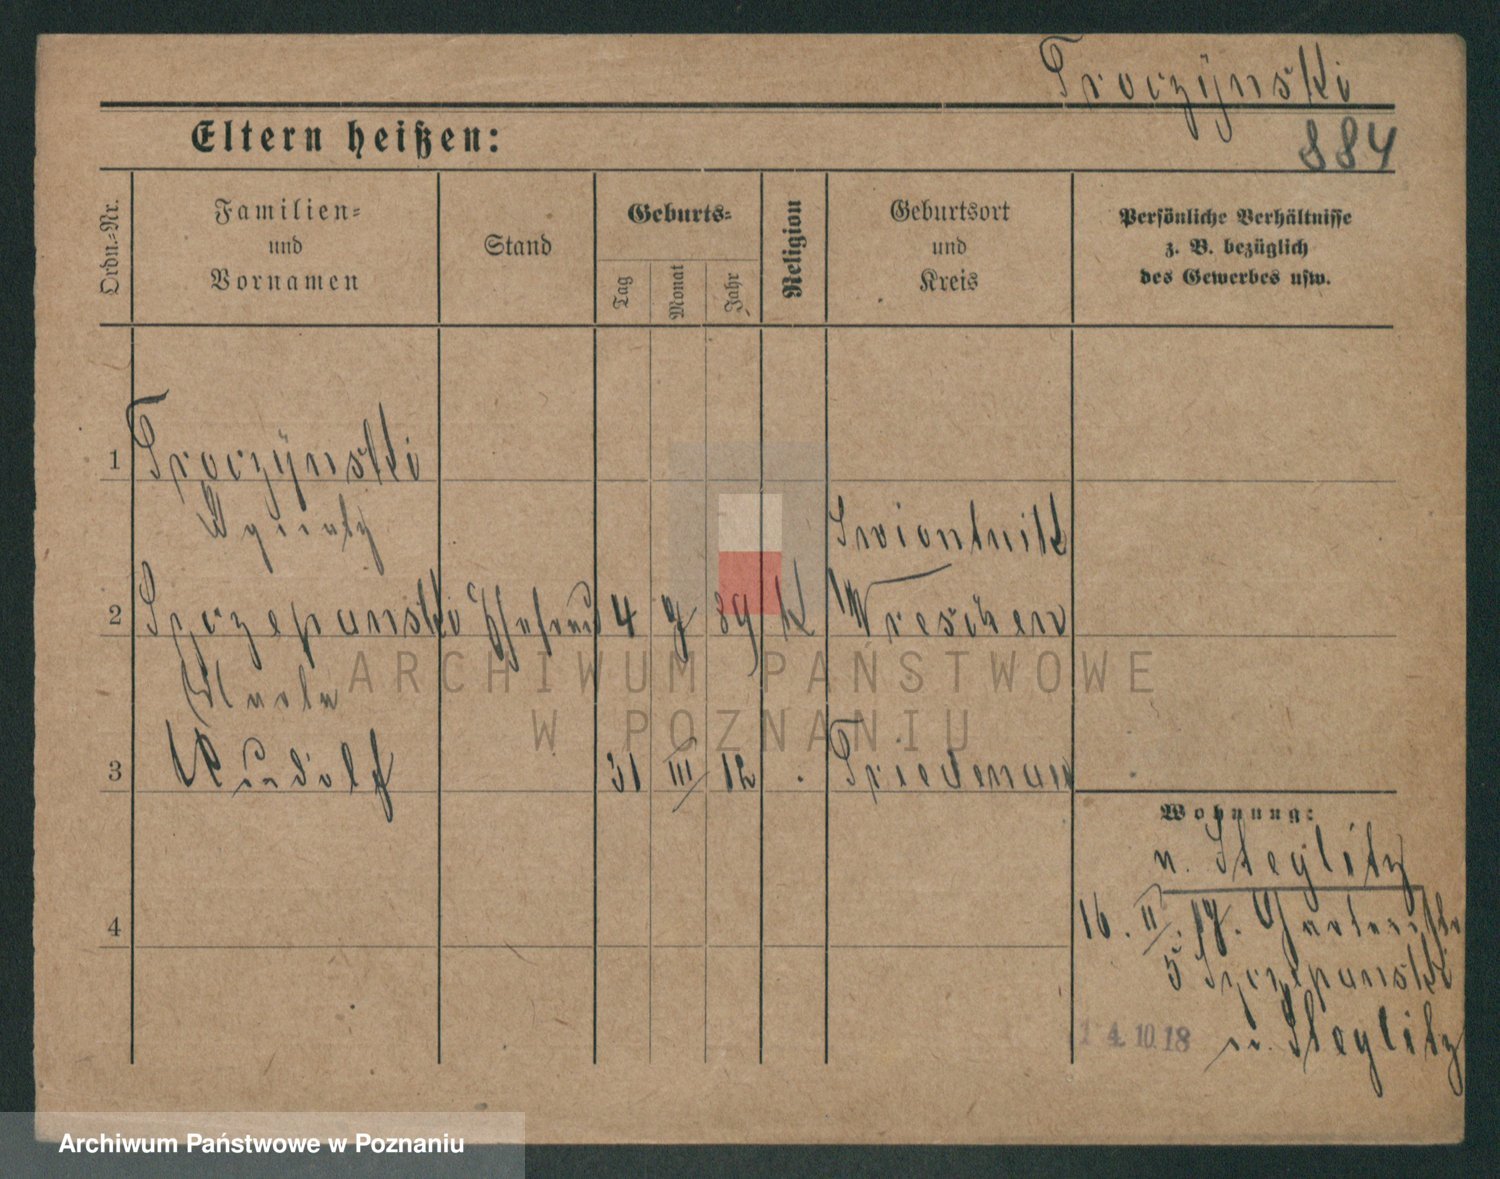 Troczynski
884
Eltern heißen:
Ordn.-Nr.
Familien-
und
Vornamen
Stand
Geburts-
Tag
Monat
Jahr
Religion
Geburtsort
und
Kreis
Persönliche Verhältnisse
z. B. bezüglich
des Gewerbes usw.
1 Troczynski
Swiontnik
2 Szczepanski Ehefrau 4 7 89 K Wreschen
Maria
3 Rudolf 31 III 12 Friedenau
Wohnung:
n. Steglitz
16. II. 17.
5 Szczepanski
4
14.10.18 n. Steglitz
ARCHIWUM PAŃSTWOWE
W POZNANIU
Archiwum Państwowe w Poznaniu